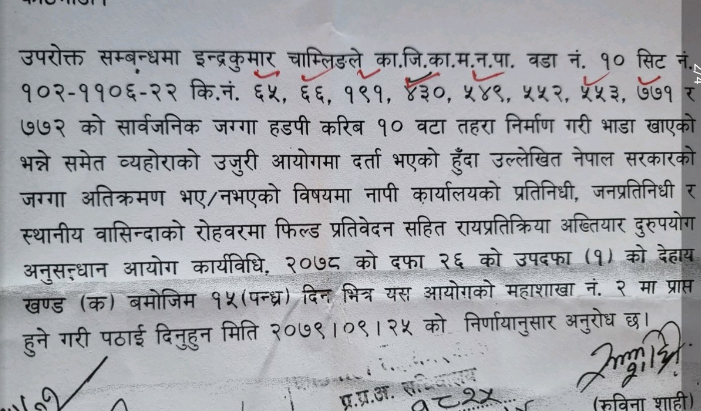 उपरोक्त सम्बन्धमा इन्द्रकुमार चाम्लिङले का.जि.का.म.न.पा. वडा नं. १० सिट नं.
१०२-११०६-२२ कि.नं. ६५, ६६, १९१, ४३०, ५४९, ५५२, ५५३, ७७१ र
७७२ को सार्वजनिक जग्गा हडपी करिब १० वटा तहरा निर्माण गरी भाडा खाएको
भन्ने समेत व्यहोराको उजुरी आयोगमा दर्ता भएको हुँदा उल्लेखित नेपाल सरकारको
जग्गा अतिक्रमण भए/नभएको विषयमा नापी कार्यालयको प्रतिनिधी, जनप्रतिनिधी र
स्थानीय वासिन्दाको रोहवरमा फिल्ड प्रतिवेदन सहित रायप्रतिक्रिया अख्तियार दुरुपयोग
अनुसन्धान आयोग कार्यविधि, २०७८ को दफा २६ को उपदफा (१) को देहाय
खण्ड (क) बमोजिम १५(पन्ध्र) दिन भित्र यस आयोगको महाशाखा नं. २ मा प्राप्त
हुने गरी पठाई दिनुहुन मिति २०७९।०९।२५ को निर्णयानुसार अनुरोध छ।
प्र.प्र.अ.
(रुविना शाही)